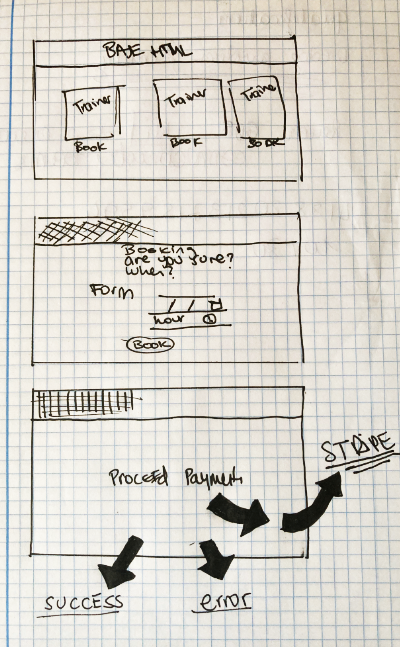 BASE HTML
Trainer Trainer Traine
Book Book BOOK
Booking
are you sure?
when?
FORM
/ /
hour
Book
Proceed Payment
STRIPE
SUCCESS error